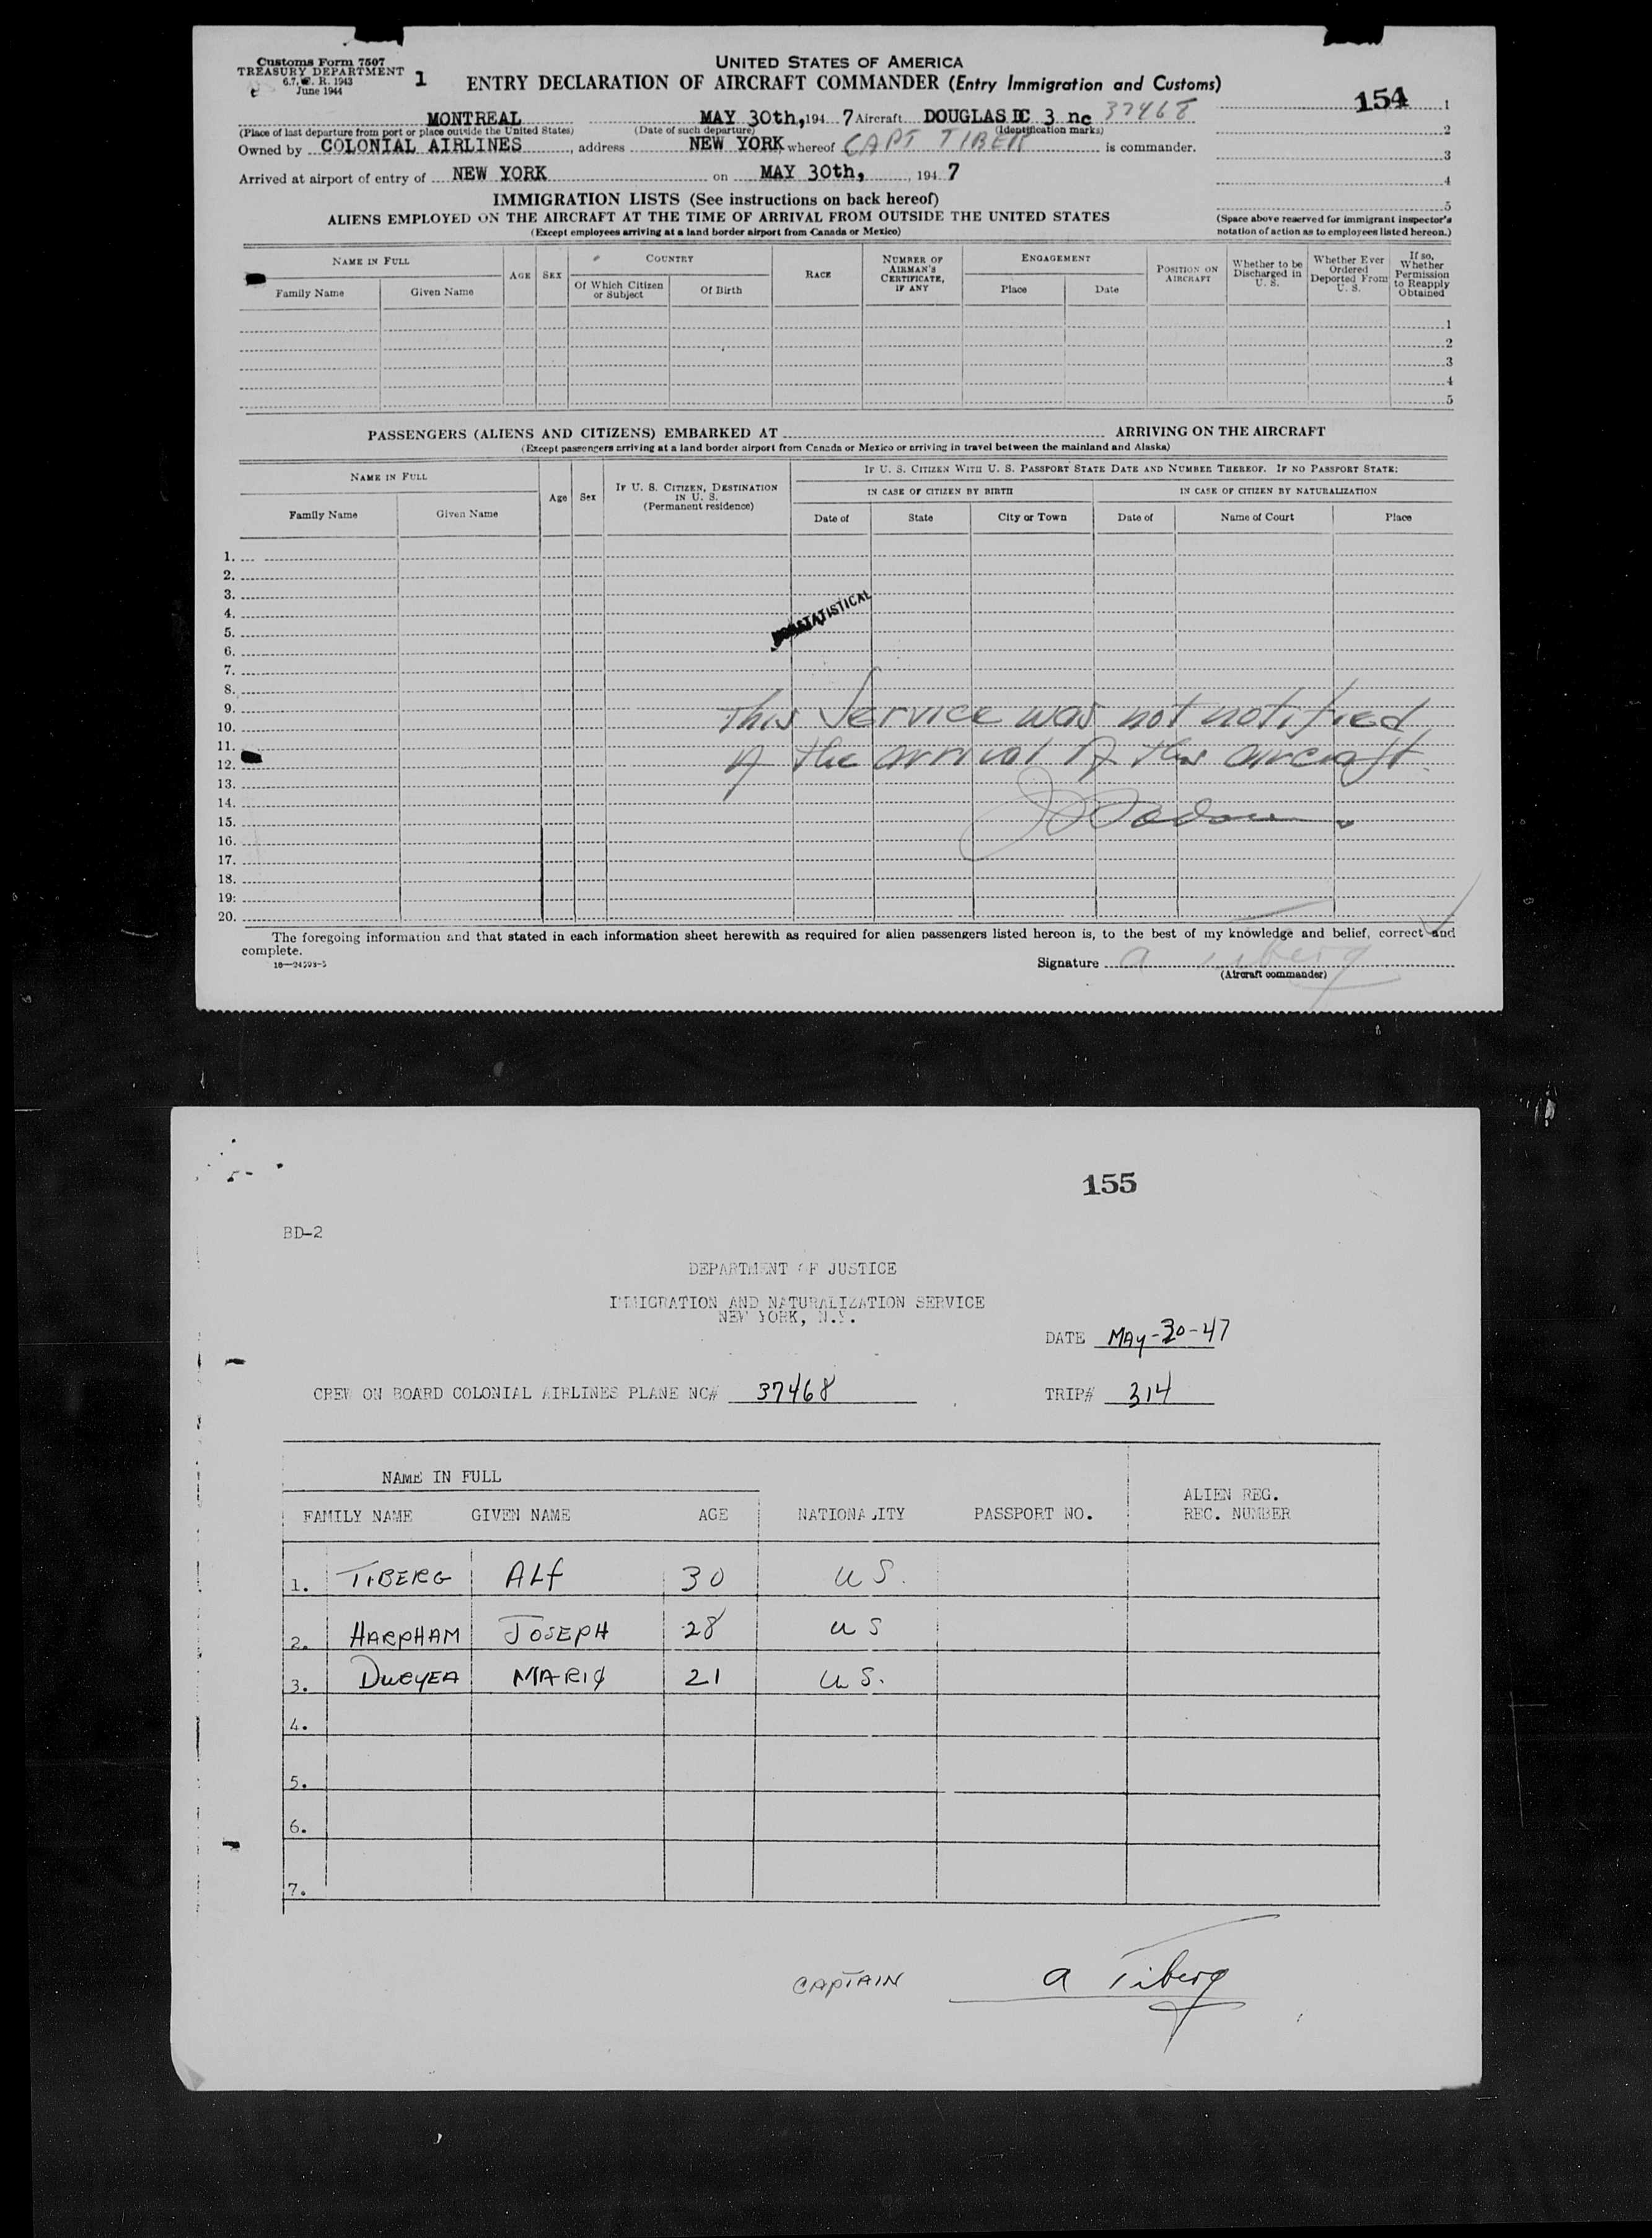 Customs Form 7507
TREASURY DEPARTMENT
6.7, C. F. R. 1943
June 1944
1
UNITED STATES OF AMERICA
ENTRY DECLARATION OF AIRCRAFT COMMANDER (Entry Immigration and Customs)
154 1
MONTREAL MAY 30th, 194 7 Aircraft DOUGLAS DC 3 nc 37468
(Place of last departure from port or place outside the United States) (Date of such departure) (Identification marks) 2
Owned by COLONIAL AIRLINES, address NEW YORK whereof CAPT TIBER is commander. 3
Arrived at airport of entry of NEW YORK on MAY 30th, 194 7 4
IMMIGRATION LISTS (See instructions on back hereof) 5
ALIENS EMPLOYED ON THE AIRCRAFT AT THE TIME OF ARRIVAL FROM OUTSIDE THE UNITED STATES
(Except employees arriving at a land border airport from Canada or Mexico)
(Space above reserved for immigrant inspector's
notation of action as to employees listed hereon.)
NAME IN FULL
Family Name Given Name
AGE SEX
COUNTRY
Of Which Citizen or Subject Of Birth
RACE
NUMBER OF AIRMAN'S CERTIFICATE, IF ANY
ENGAGEMENT
Place Date
POSITION ON AIRCRAFT
Whether to be Discharged in U. S.
Whether Ever Ordered Deported From U. S.
If so, Whether Permission to Reapply Obtained
1
2
3
4
5
PASSENGERS (ALIENS AND CITIZENS) EMBARKED AT ARRIVING ON THE AIRCRAFT
(Except passengers arriving at a land border airport from Canada or Mexico or arriving in travel between the mainland and Alaska)
NAME IN FULL
Family Name Given Name
Age Sex
IF U. S. CITIZEN, DESTINATION IN U. S.
(Permanent residence)
IF U. S. CITIZEN WITH U. S. PASSPORT STATE DATE AND NUMBER THEREOF. IF NO PASSPORT STATE:
IN CASE OF CITIZEN BY BIRTH IN CASE OF CITIZEN BY NATURALIZATION
Date of State City or Town Date of Name of Court Place
1.
2.
3.
4.
NONSTATISTICAL
5.
6.
7.
8.
9. This Service was not notified
10.
11.
12. of the arrival of this aircraft.
13.
14.
15.
16.
17.
18.
19.
20.
The foregoing information and that stated in each information sheet herewith as required for alien passengers listed hereon is, to the best of my knowledge and belief, correct and
complete.
16—24593-5
Signature a Tiberg
(Aircraft commander)
155
BD-2
DEPARTMENT OF JUSTICE
IMMIGRATION AND NATURALIZATION SERVICE
NEW YORK, N.Y.
DATE MAY-30-47
CREW ON BOARD COLONIAL AIRLINES PLANE NC# 37468 TRIP# 314
NAME IN FULL
FAMILY NAME GIVEN NAME AGE NATIONALITY PASSPORT NO. ALIEN REG. REC. NUMBER
1. TIBERG ALF 30 U S.
2. HARPHAM JOSEPH 28 U S
3. MARIO 21 U S.
4.
5.
6.
7.
CAPTAIN a Tiberg